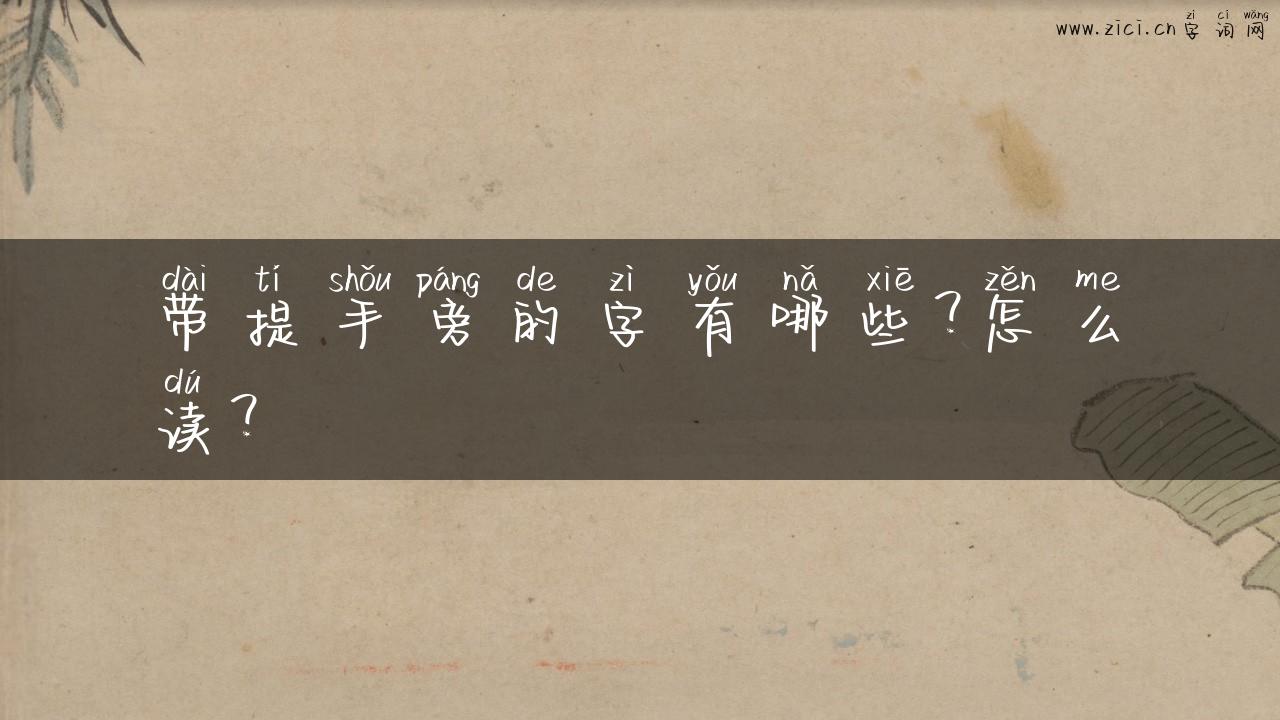 zì cí wǎng
www.zici.cn 字词网
dài tí shǒu páng de zì yǒu nǎ xiē zěn me
带提手旁的字有哪些？怎么
dú
读？